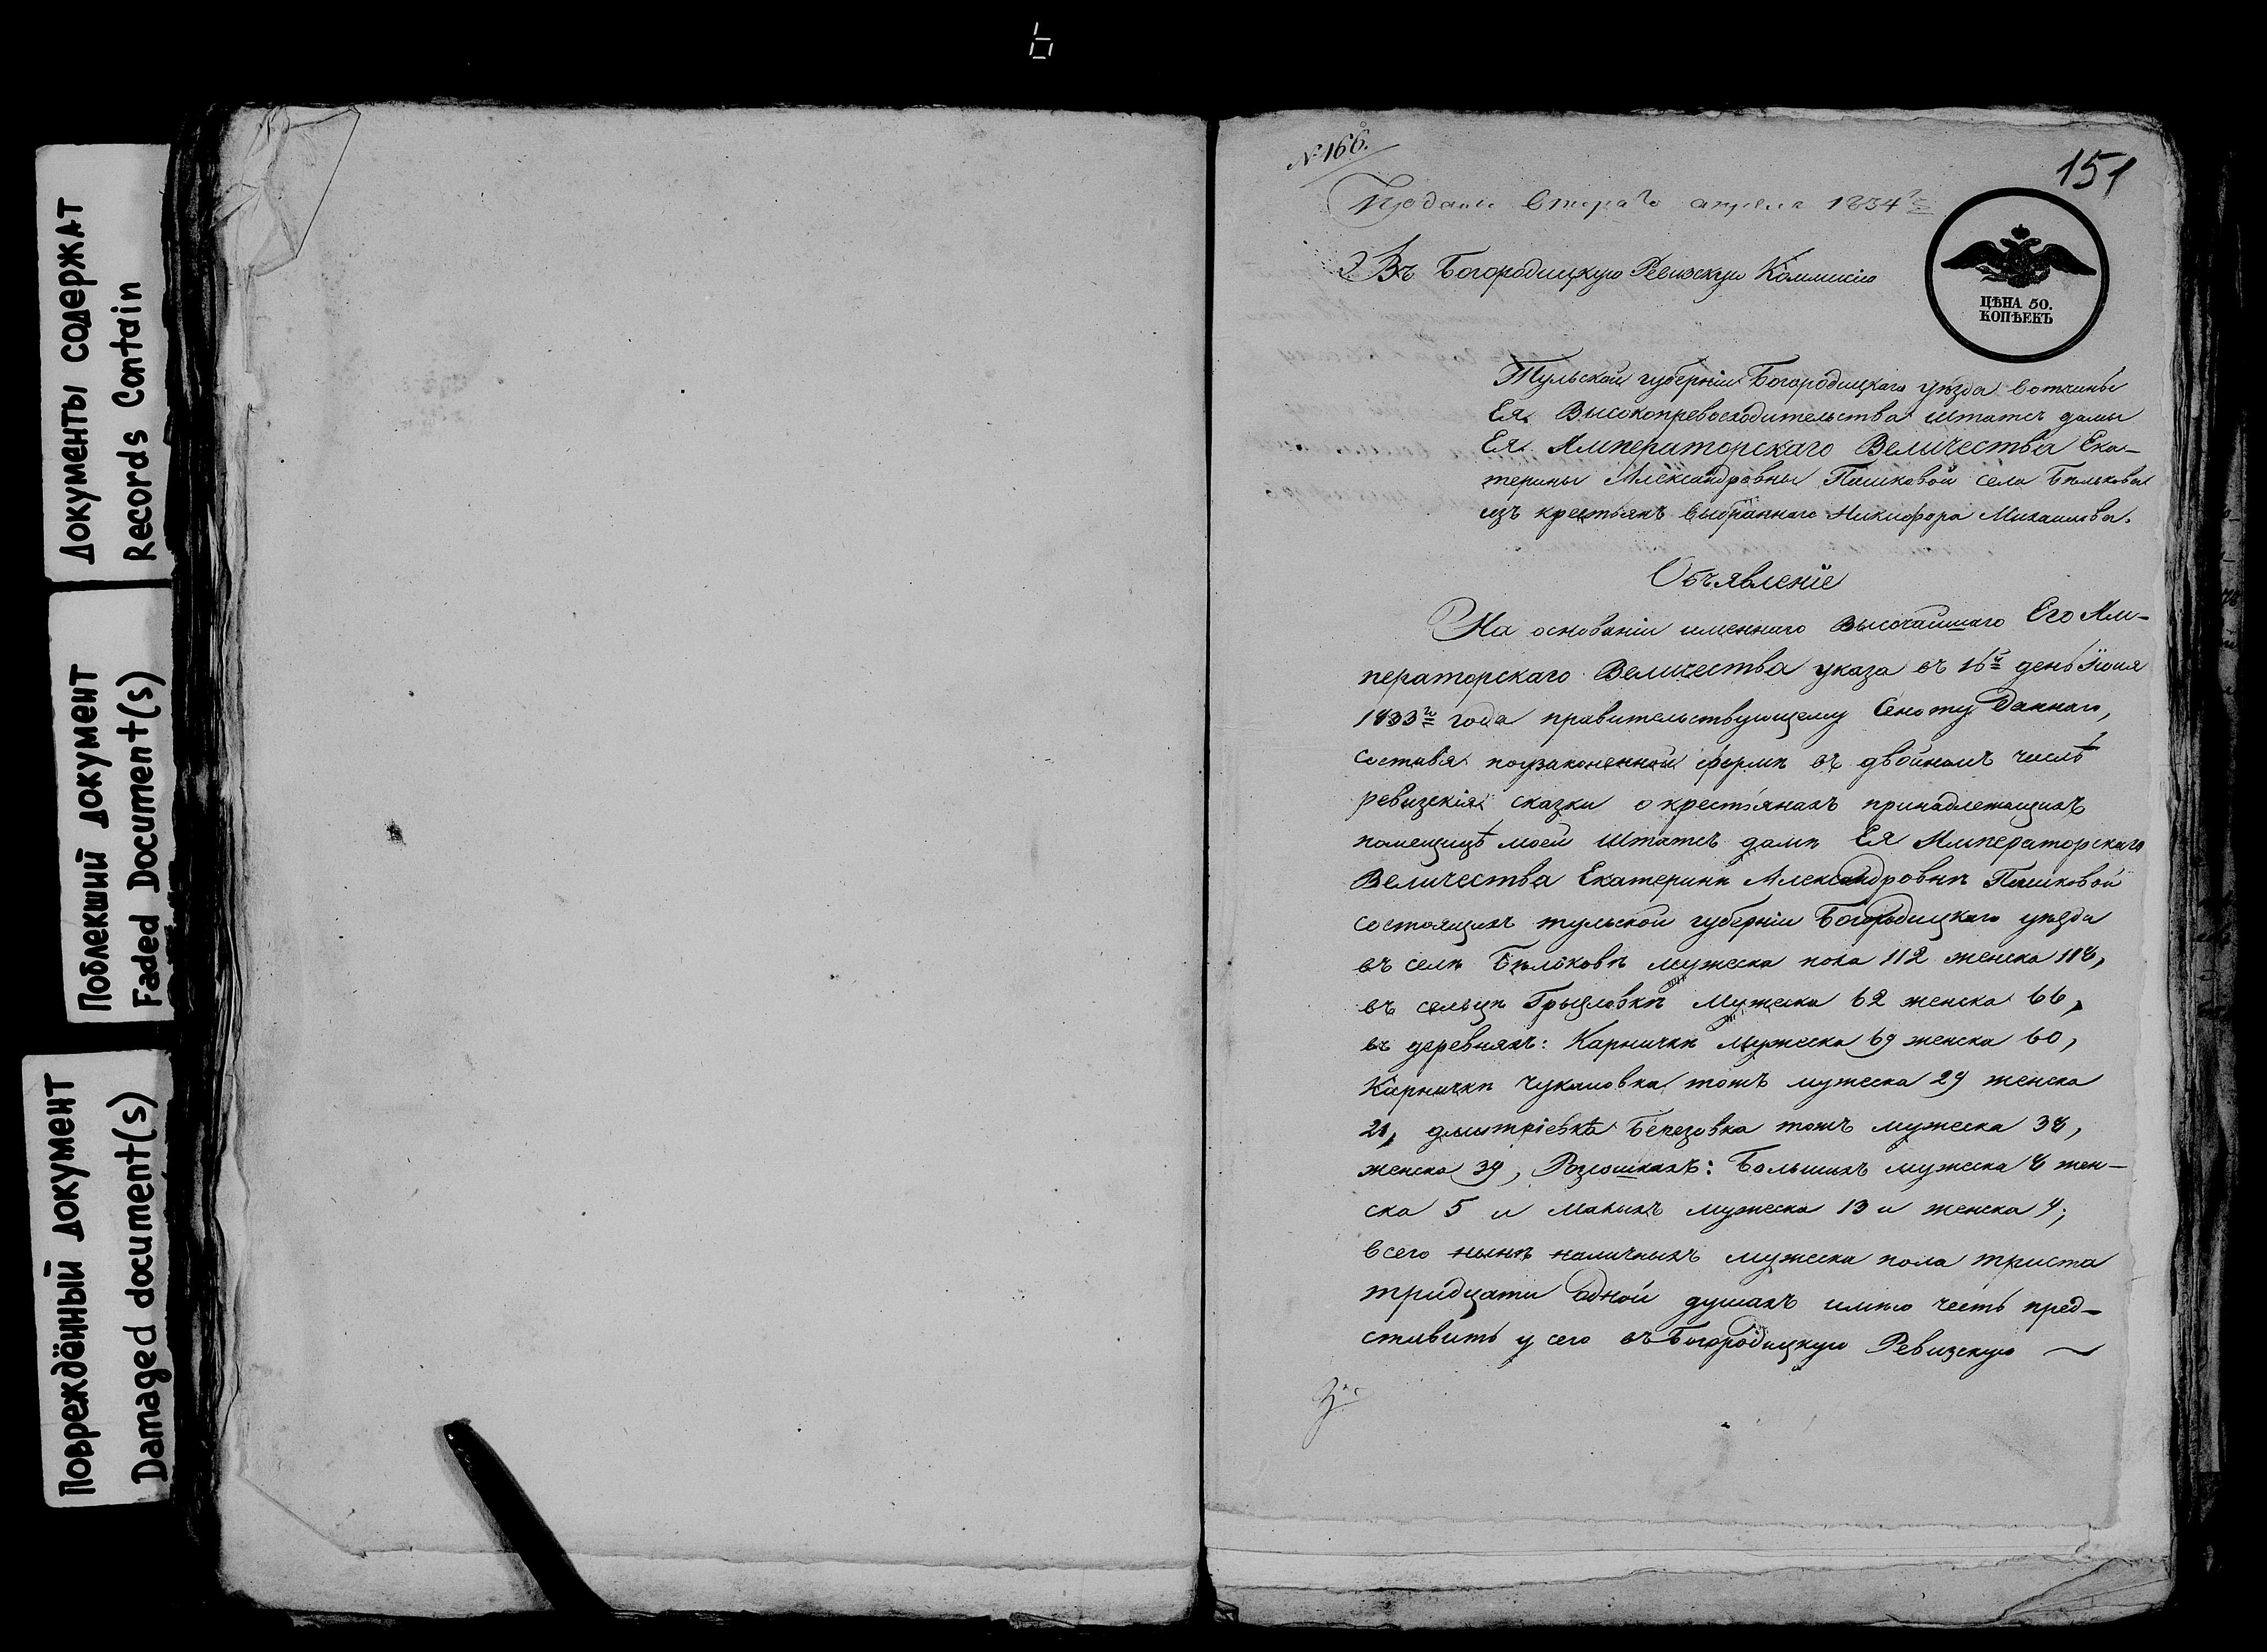 ДОКУМЕНТЫ СОДЕРЖАТ
Records Contain
Поблекший документ
Faded Document(s)
Повреждённый документ
Damaged document(s)
№ 166.
151
Подано втораго апреля 1834го
Въ Богородицкую Ревизскую Коммисію
ЦѢНА 50.
КОПѢЕКЪ
Тульской губерніи Богородицкаго уѣзда вотчины
Ея Высокопревосходительства Штатсъ дамы
Ея Императорскаго Величества Ека-
терины Александровны Пашковой села Бѣлькова
изъ крестьянъ выбраннаго Никифора Михаилова.
Объявленіе
На основаніи имяннаго высочайшаго Его Им-
ператорскаго Величества указа въ 16й день Іюня
1833го года правительствующему Сенату даннаго,
составя поузаконенной формѣ въ двойномъ числѣ
ревизскія сказки о крестьянахъ принадлежащихъ
помещицѣ моей Штатсъ дамѣ Ея Императорскаго
Величества Екатеринѣ Александровнѣ Пашковой
состоящихъ тульской губерніи Богородицкаго уѣзда
въ селѣ Бѣльковѣ мужеска пола 112 женска 118,
въ сельцѣ Грызловкѣ мужеска 62 женска 66,
въ деревняхъ: Карничкѣ мужеска 69 женска 60,
Карничкѣ Чукаловка тожъ мужеска 29 женска
21, дмитріевкѣ Березовка тожъ мужеска 38,
женска 39, Розсошкахъ: Большихъ мужеска 8 жен-
ска 5 и малыхъ мужеска 13 и женска 4;
всего нынѣ наличныхъ мужеска пола триста
тридцати одной душахъ имѣю честь пред-
ставить у сего въ Богородицкую Ревизскую